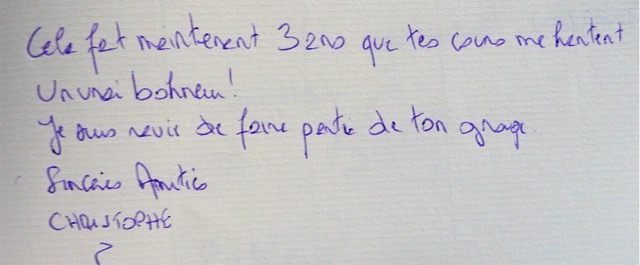 Cela fait maintenant 3 ans que tes cours me hantent
Un vrai bonheur !
Je suis ravie de faire partie de ton groupe
Sincères Amitiés
CHRISTOPHE